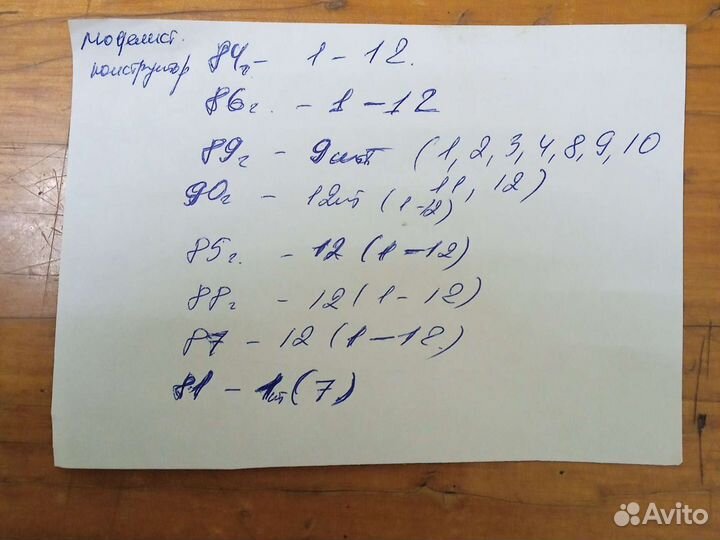 Моделист.
конструктор
84г - 1 - 12.
86г. - 1 - 12
89г - 9шт (1, 2, 3, 4, 8, 9, 10
11, 12)
90г - 12шт (1-12)
85г. - 12 (1-12)
88г - 12 (1-12)
87 - 12 (1-12)
81 - 1шт (7)
Avito